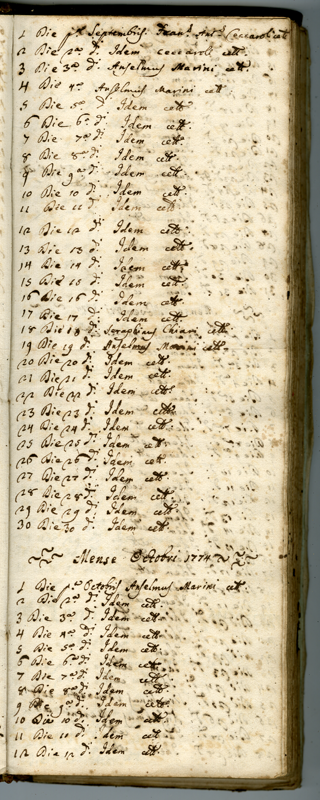 1 Die pa Septembris. Franc. Ant. Ceccaroli cett.
2 Die 2a d.i Idem Ceccaroli cett.
3 Die 3a d.i Anselmus Marini cett.
4 Die 4a Anselmus Marini cett.
5 Die 5a d.i Idem cett.
6 Die 6a d.i Idem cett.
7 Die 7a d.i Idem cett.
8 Die 8a d.i Idem cett.
9 Die 9a d.i Idem cett.
10 Die 10 d.i Idem cett.
11 Die 11 d.i Idem cett.
12 Die 12 d.i Idem cett.
13 Die 13 d.i Idem cett.
14 Die 14 d.i Idem cett.
15 Die 15 d.i Idem cett.
16 Die 16 d.i Idem cett.
17 Die 17 d.i Idem cett.
18 Die 18 d.i Seraphinus Chiari cett.
19 Die 19 d.i Anselmus Marini cett.
20 Die 20 d.i Idem cett.
21 Die 21 d.i Idem cett.
22 Die 22 d.i Idem cett.
23 Die 23 d.i Idem cett.
24 Die 24 d.i Idem cett.
25 Die 25 d.i Idem cett.
26 Die 26 d.i Idem cett.
27 Die 27 d.i Idem cett.
28 Die 28 d.i Idem cett.
29 Die 29 d.i Idem cett.
30 Die 30 d.i Idem cett.
Mense Octobris 1774
1 Die pa Octobris Anselmus Marini cett.
2 Die 2a d.i Idem cett.
3 Die 3a d.i Idem cett.
4 Die 4a d.i Idem cett.
5 Die 5a d.i Idem cett.
6 Die 6a d.i Idem cett.
7 Die 7a d.i Idem cett.
8 Die 8a d.i Idem cett.
9 Die 9a d.i Idem cett.
10 Die 10 d.i Idem cett.
11 Die 11 d.i Idem cett.
12 Die 12 d.i Idem cett.